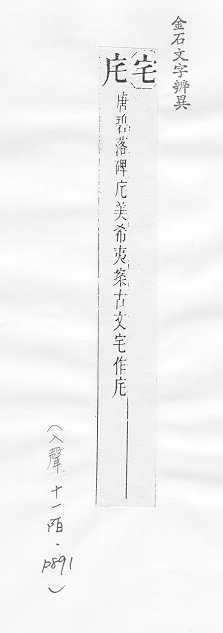 金石文字辨異
宅㡯
唐碧落碑㡯美希夷案古文宅作㡯
(入聲十一陌.p891)